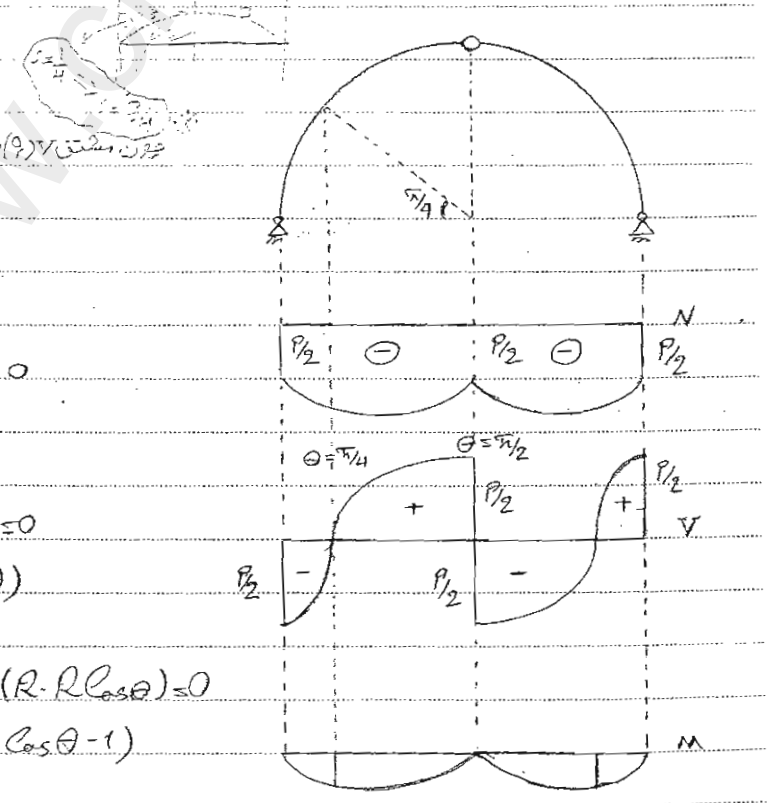 چون مشتق V
π/4
N
P/2 − P/2 − P/2
0
θ=π/4 θ=π/2
P/2
+ P/2 +
=0 V
P/2 − P/2 −
)
(R-R Cosθ)=0
Cosθ-1)
M